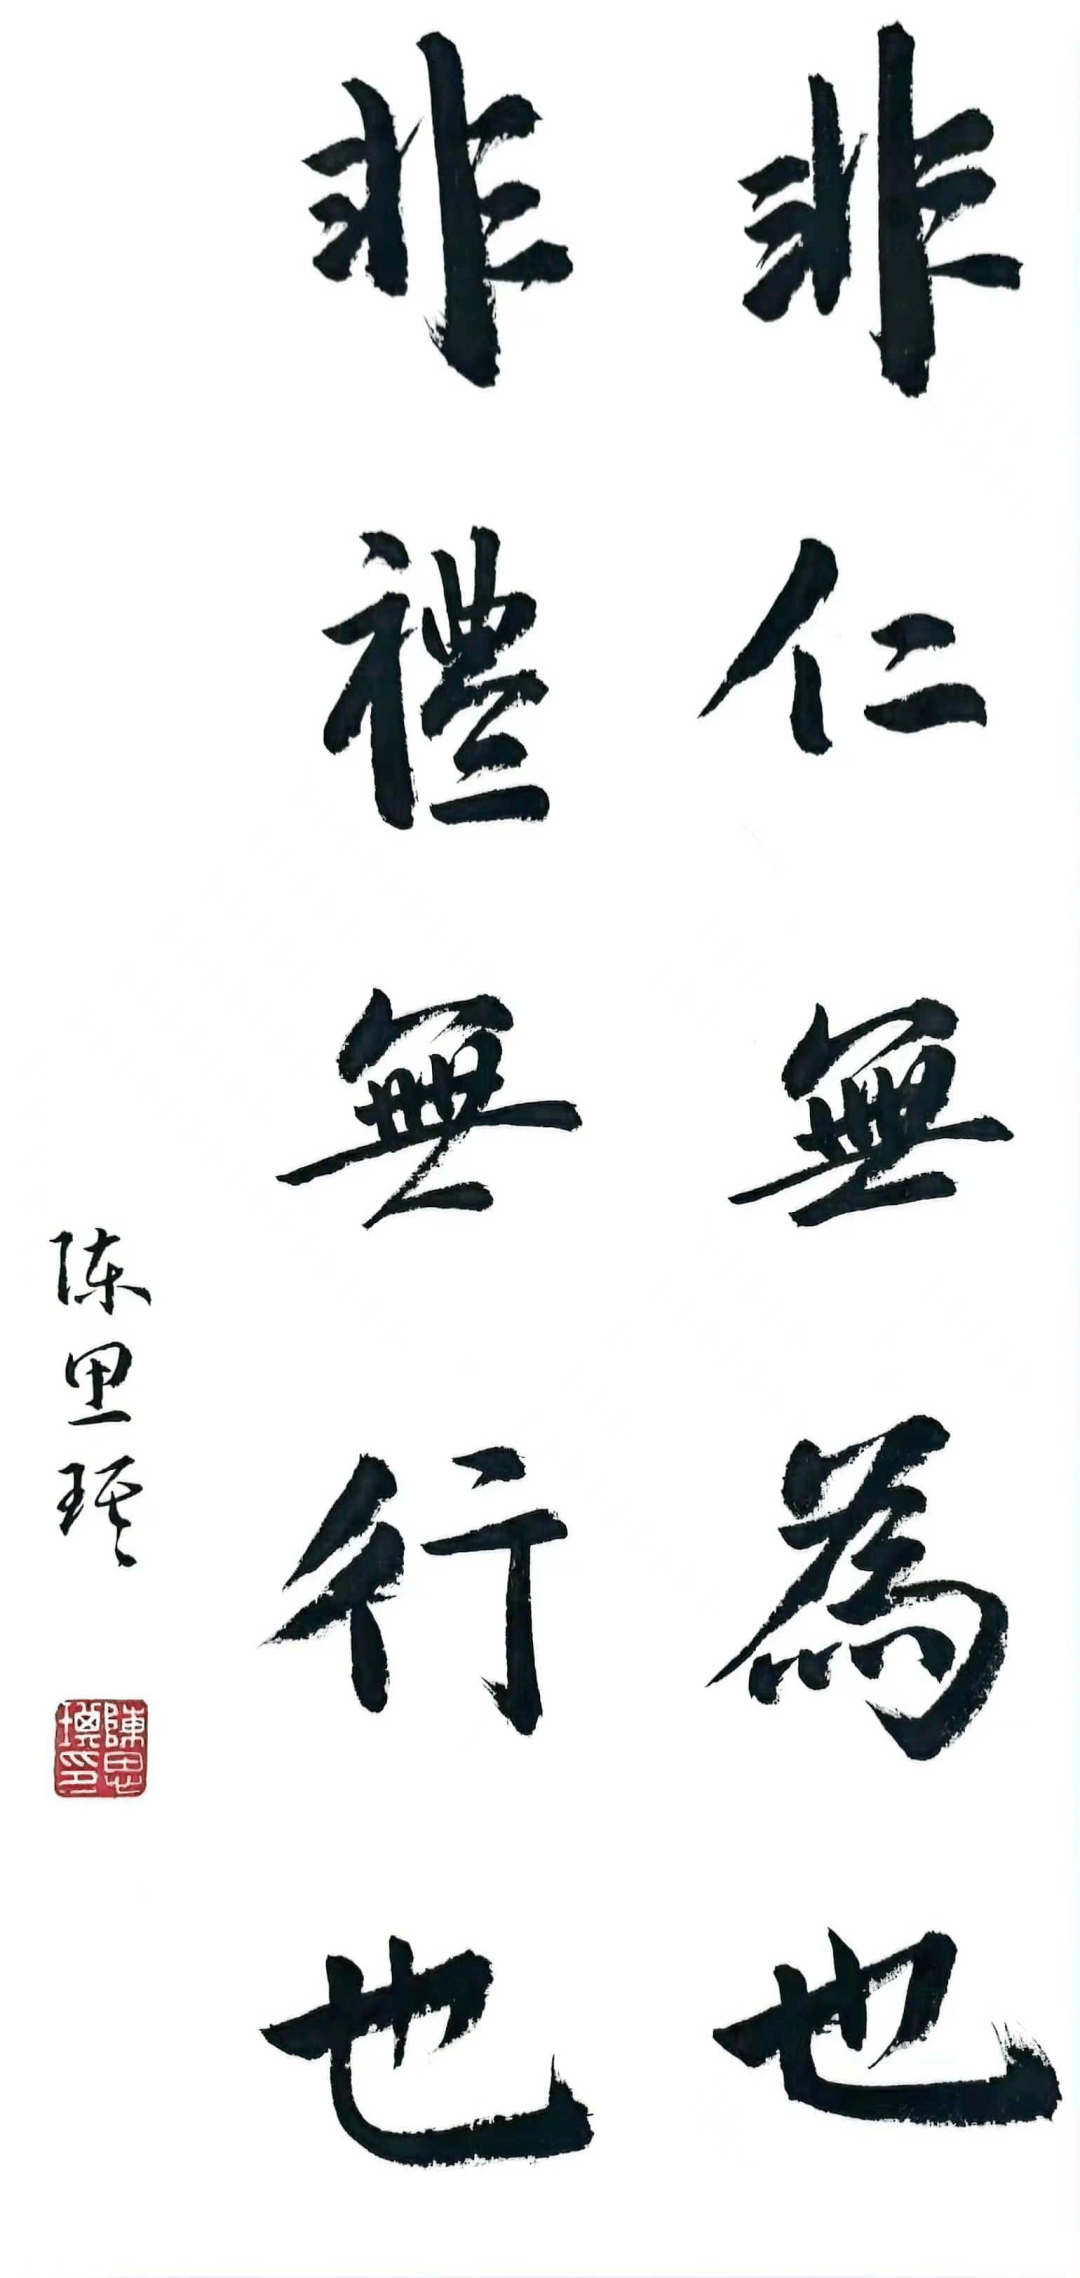 非仁無為也
非禮無行也
陈思
陳思
印